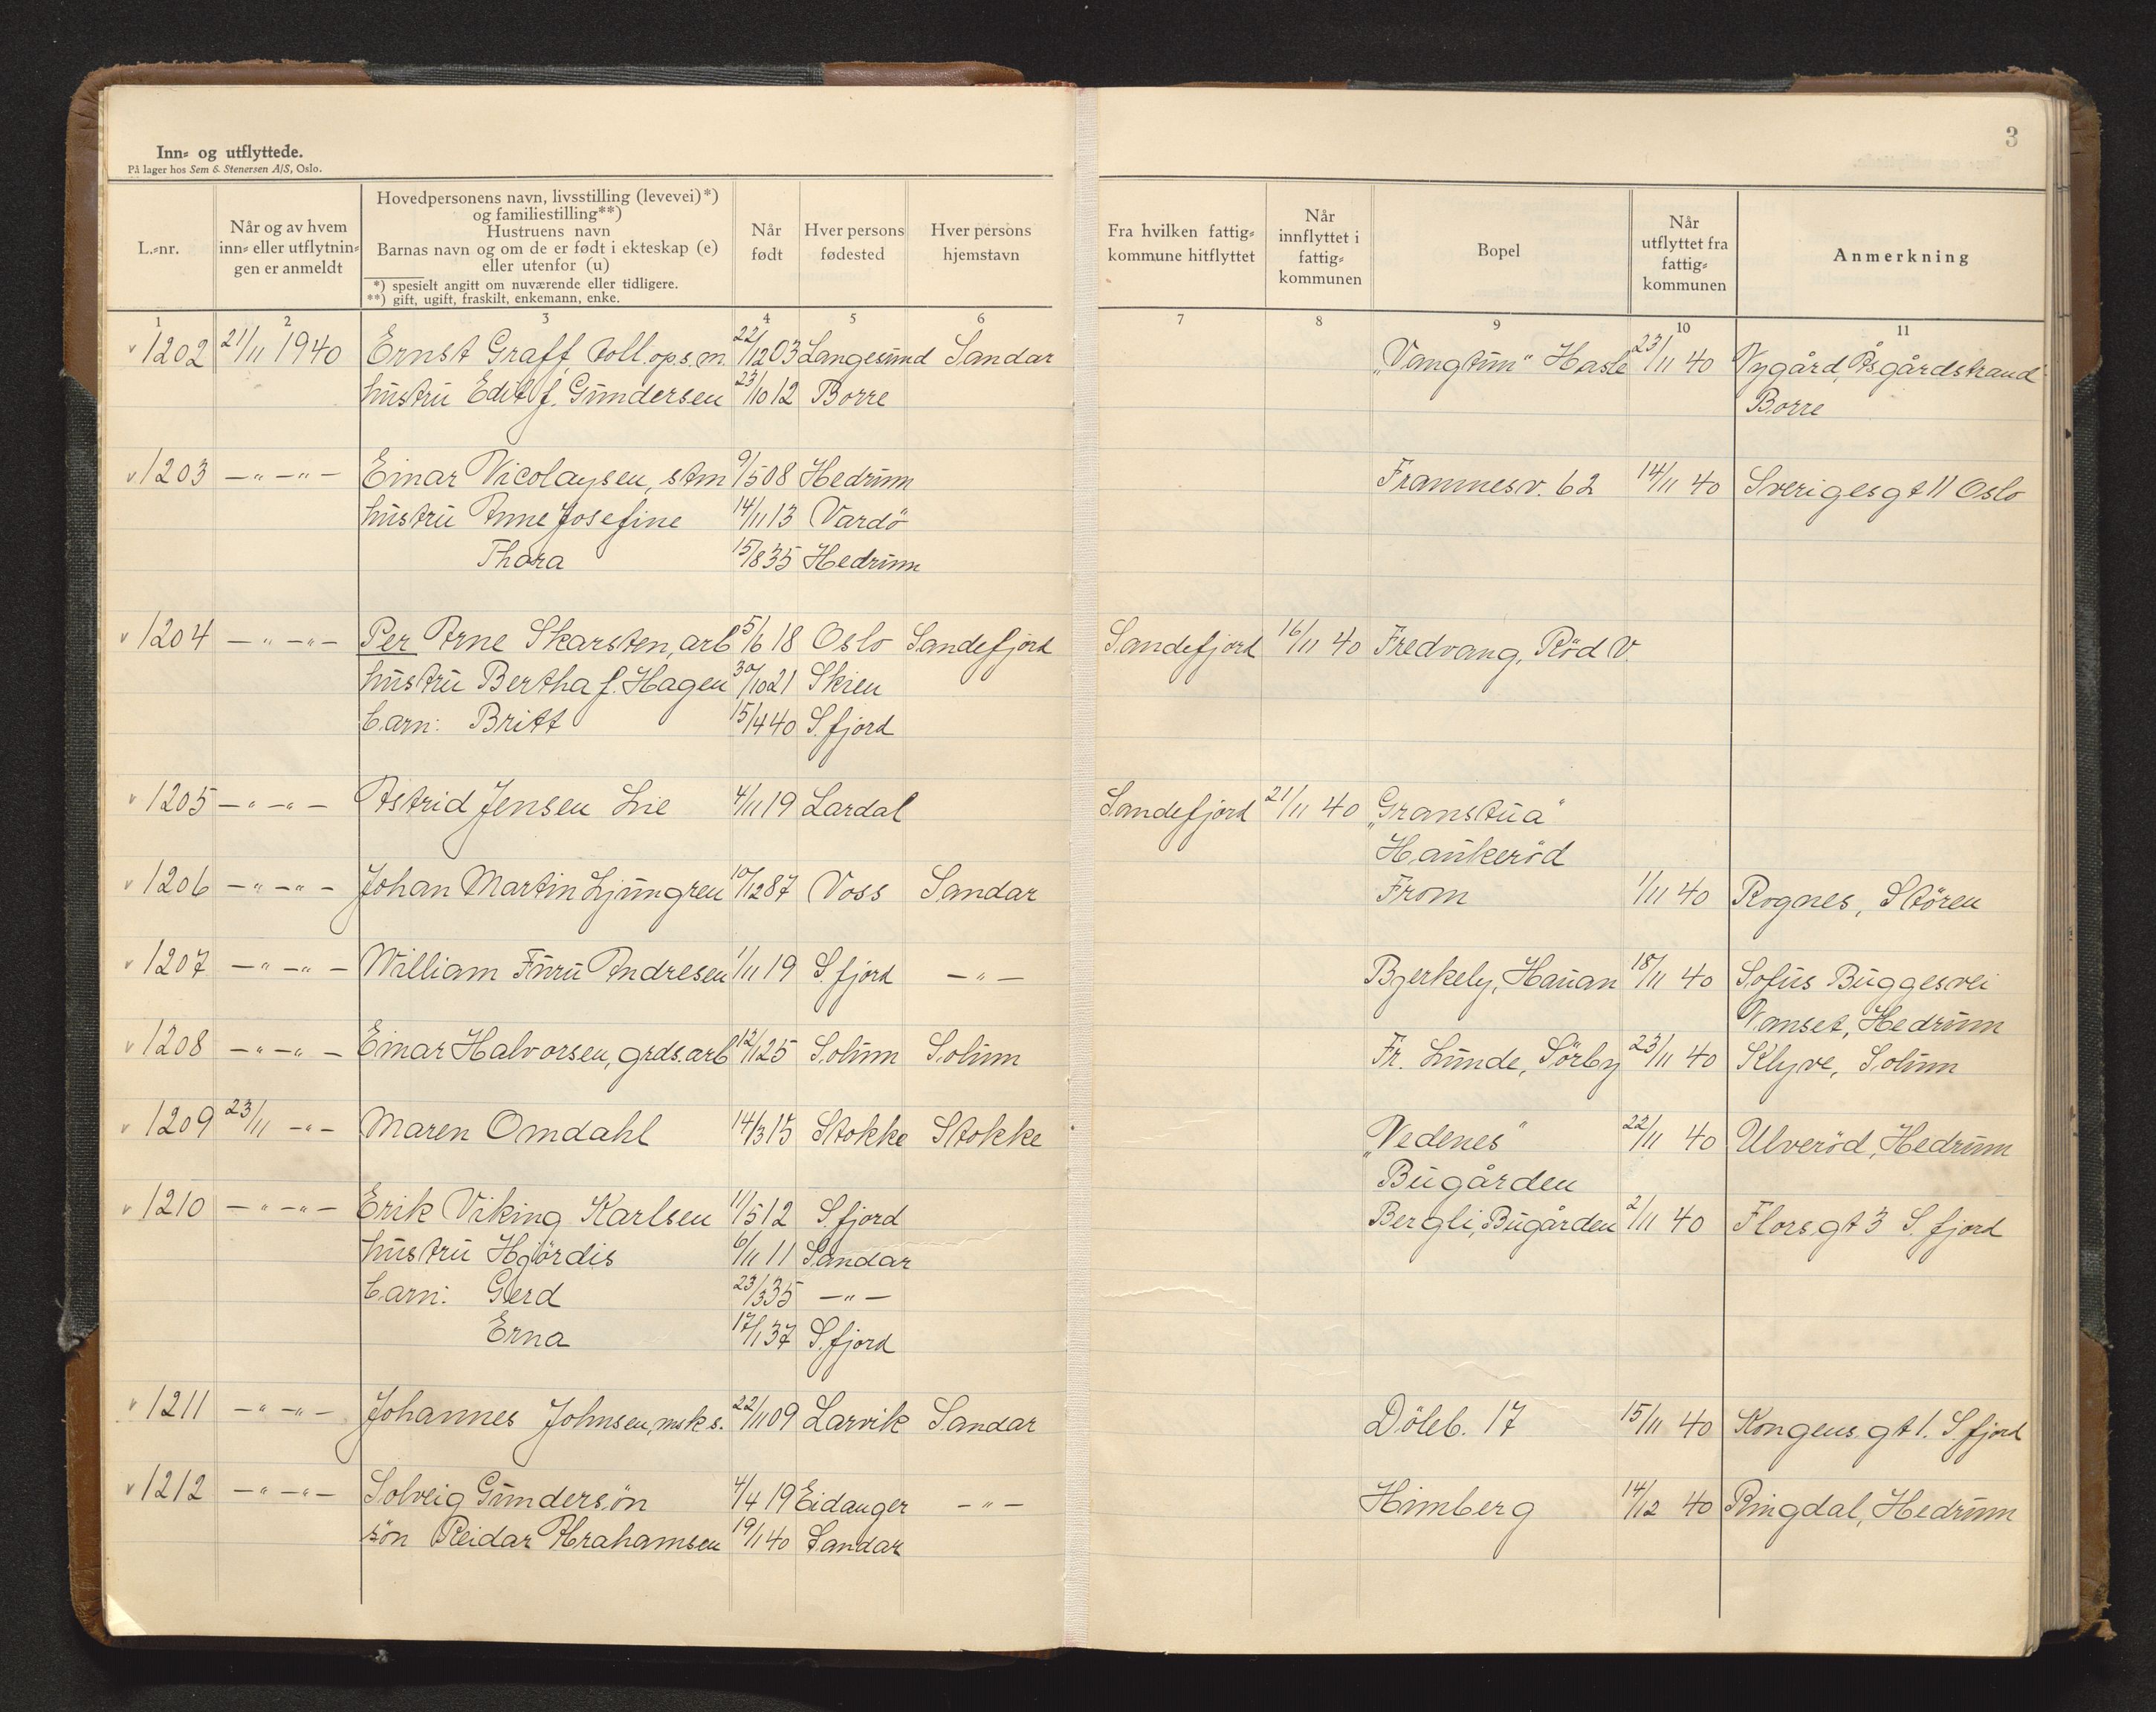 3
Inn- og utflyttede.
På lager hos Sem & Stenersen A/S, Oslo.
L.-nr. | Når og av hvem inn- eller utflytningen er anmeldt | Hovedpersonens navn, livsstilling (levevei)*) og familiestilling**) Hustruens navn Barnas navn og om de er født i ekteskap (e) eller utenfor (u) *) spesielt angitt om nuværende eller tidligere. **) gift, ugift, fraskilt, enkemann, enke. | Når født | Hver persons fødested | Hver persons hjemstavn | Fra hvilken fattigkommune hitflyttet | Når innflyttet i fattigkommunen | Bopel | Når utflyttet fra fattigkommunen | Anmerkning
1 2 3 4 5 6 7 8 9 10 11
v 1202 21/11 1940 Ernst Graff, toll.ops.m. 22/12 03 Langesund Sandar „Vangtun" Hasle 23/11 40 Nygård, Åsgårdstrand
hustru Edit f. Gundersen 23/10 12 Borre Borre
v 1203 —"—"— Einar Nicolaysen, stm 9/5 08 Hedrum Framnesv. 62 14/11 40 Sverigesgt 11 Oslo
hustru Anne Josefine 14/11 13 Vardö
Thora 15/8 35 Hedrum
v 1204 —"—"— Per Arne Skarsten, arb 5/6 18 Oslo Sandefjord Sandefjord 16/11 40 Fredvang, Röd V.
hustru Bertha f. Hagen 30/10 21 Skien
barn: Britt 15/4 40 S.fjord
v 1205 —"—"— Astrid Jensen Lie 4/11 19 Lardal Sandefjord 21/11 40 „Granstua"
Haukeröd
v 1206 —"—"— Johan Martin Ljungren 10/12 87 Voss Sandar From 1/11 40 Rognes, Stören
v 1207 —"—"— William Furu Andresen 1/11 19 S.fjord —"— Bjerkely, Hauan 18/11 40 Sofus Buggesvei
Nanset, Hedrum
v 1208 —"—"— Einar Halvorsen, grds.arb 12/1 25 Solum Solum Fr. Lunde, Sörby 23/11 40 Klyve, Solum
v 1209 23/11 —"— Maren Omdahl 14/3 15 Stokke Stokke „Vedenes" 22/11 40 Ulveröd, Hedrum
Bugården
v 1210 —"—"— Erik Viking Karlsen 11/5 12 S.fjord Bergli, Bugården 2/11 40 Florsgt 3 S.fjord
hustru Hjördis 6/11 11 Sandar
barn: Gerd 23/3 35 —"—
Erna 17/1 37 S.fjord
v 1211 —"—"— Johannes Johnsen, msks. 22/11 09 Larvik Sandar Döleb. 17 15/11 40 Kongens gt 1. S.fjord
v 1212 —"—"— Solveig Gundersön 4/4 19 Eidanger —"— Himberg 14/12 40 Ringdal, Hedrum
sön Reidar Abrahamsen 19/1 40 Sandar